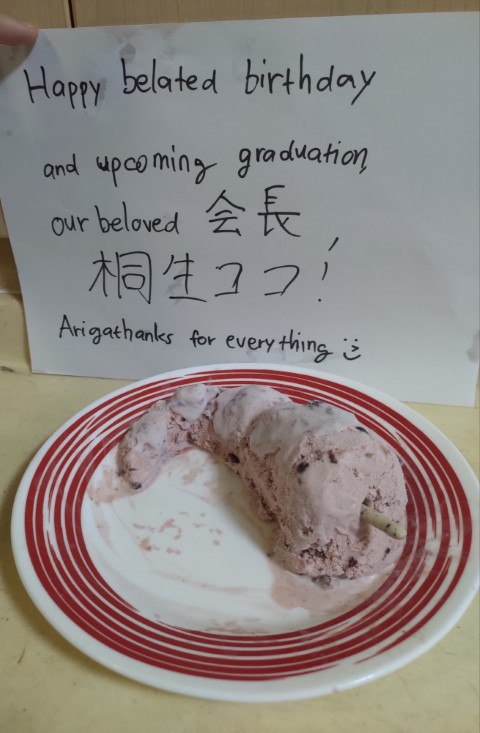 Happy belated birthday
and upcoming graduation,
our beloved 会長
桐生ココ!
Arigathanks for everything :)